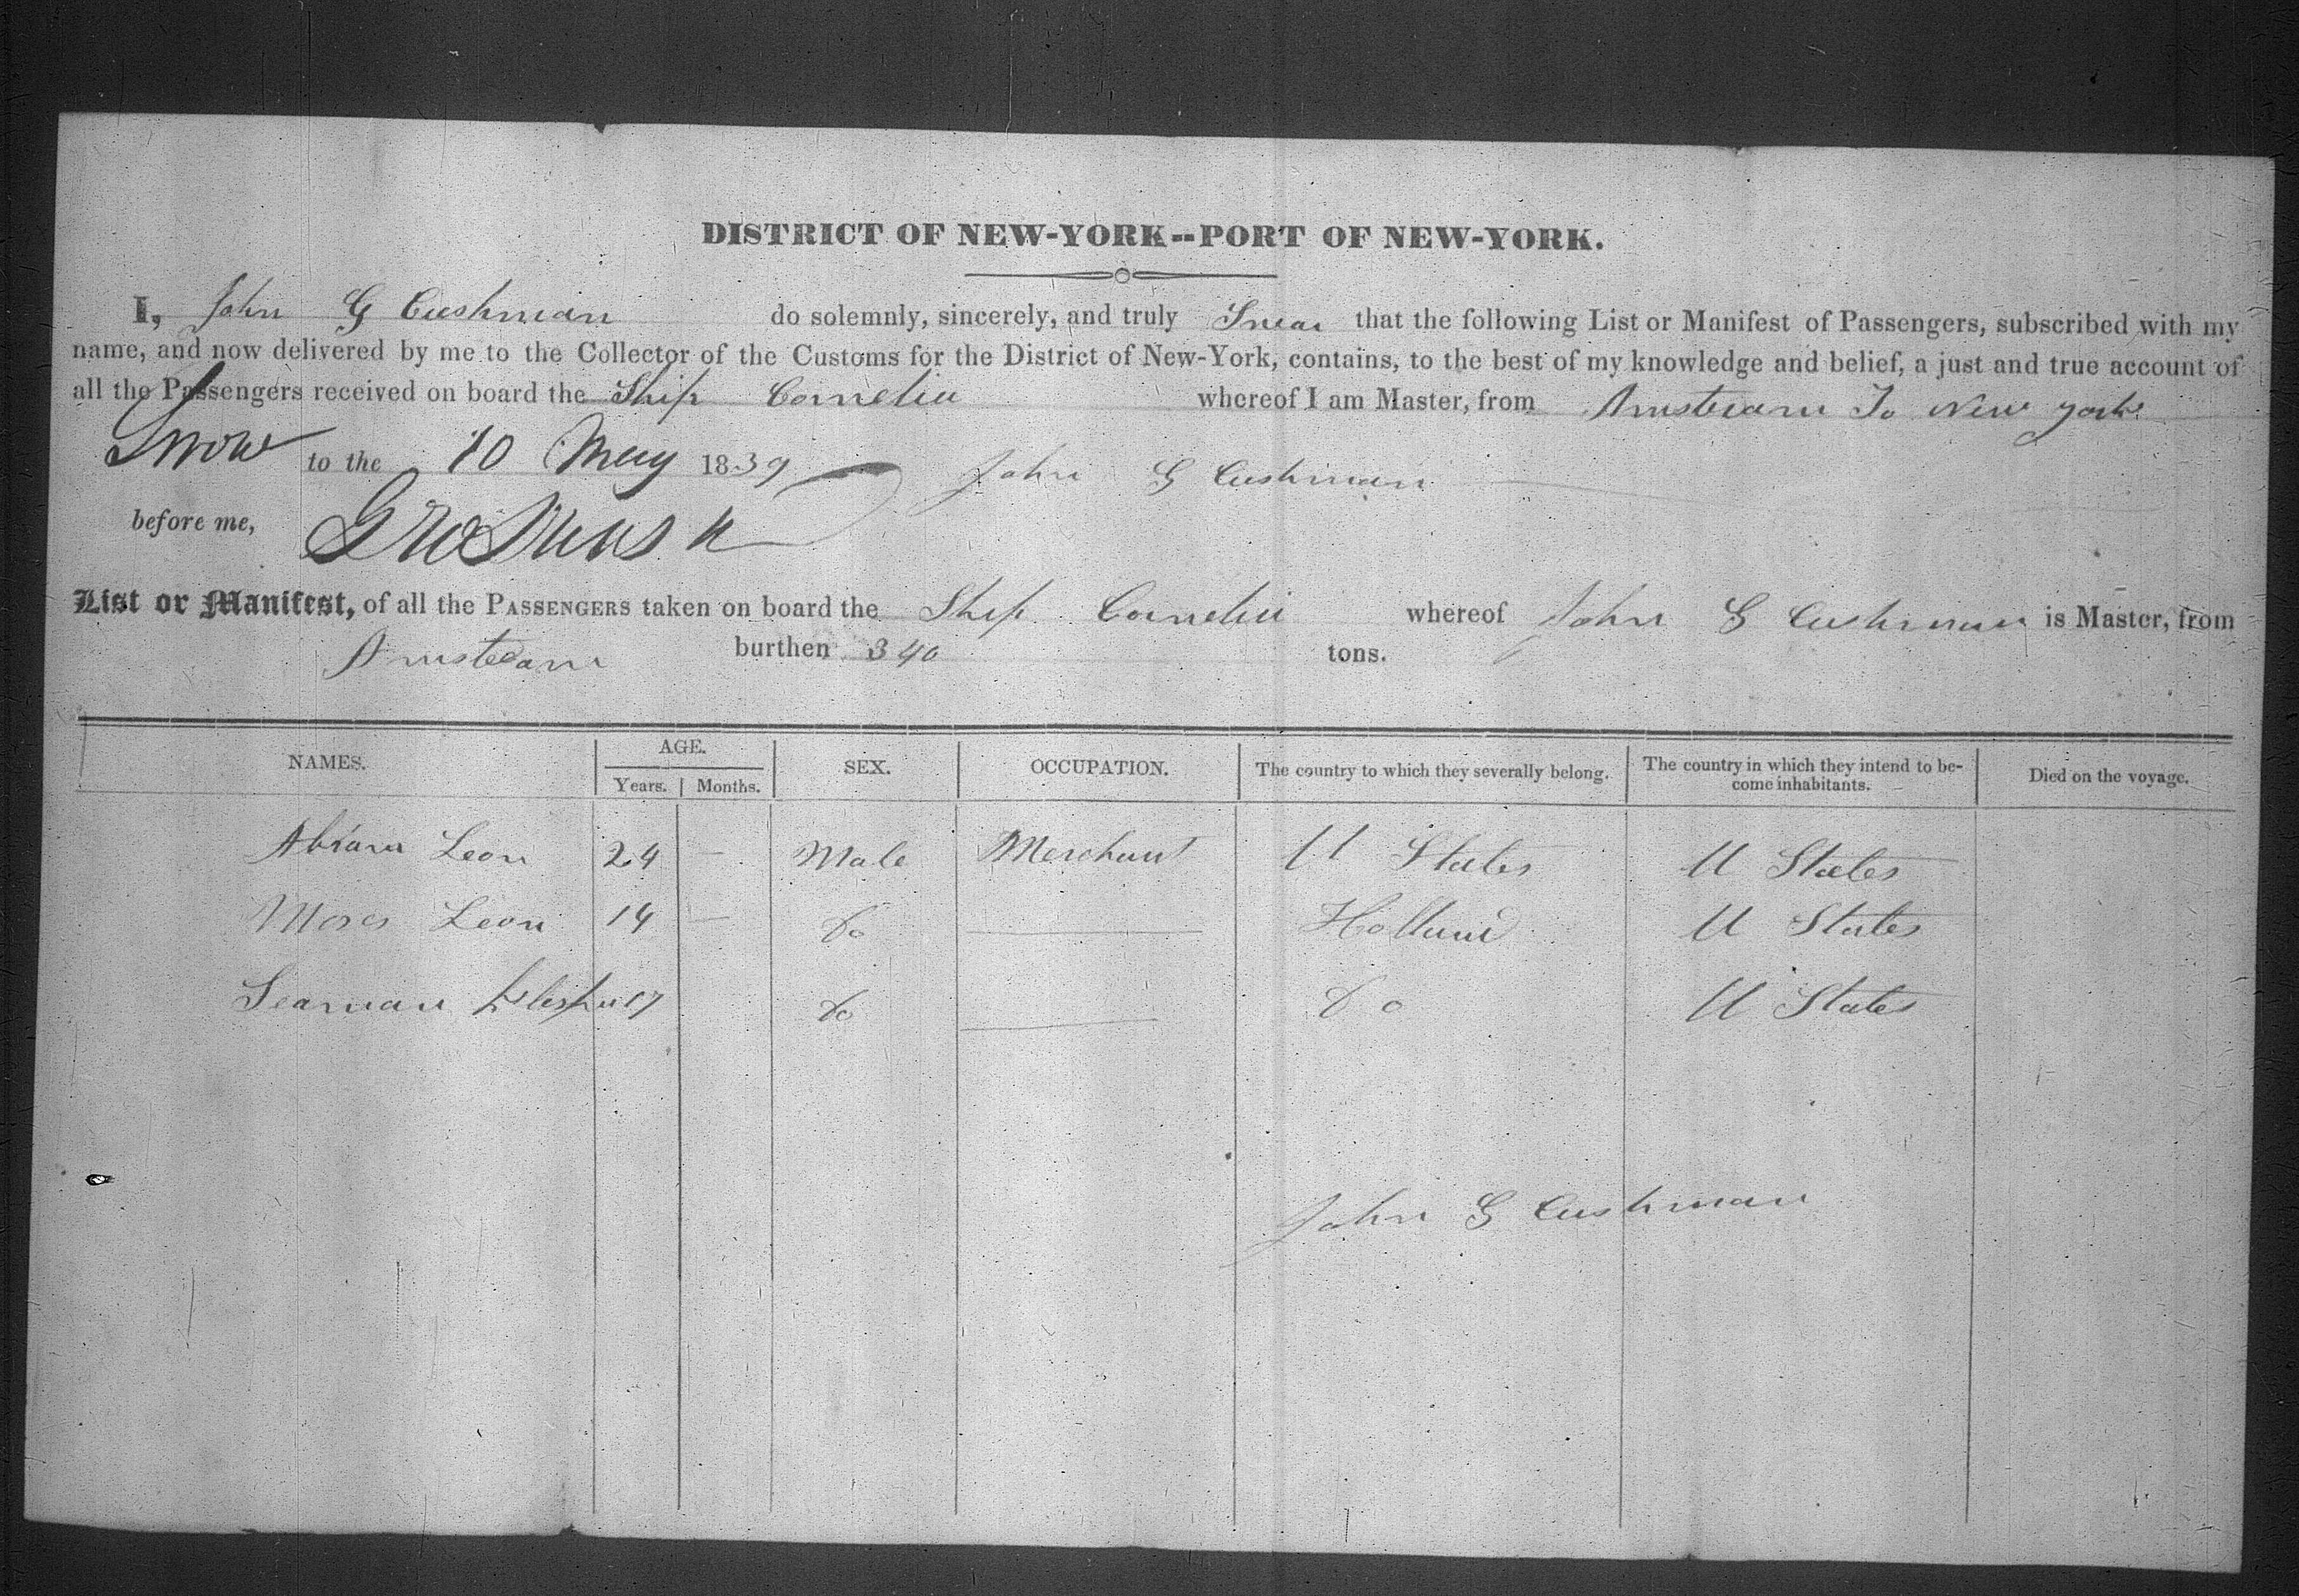 DISTRICT OF NEW-YORK--PORT OF NEW-YORK.
I, John G Cushman do solemnly, sincerely, and truly Swear that the following List or Manifest of Passengers, subscribed with my
name, and now delivered by me to the Collector of the Customs for the District of New-York, contains, to the best of my knowledge and belief, a just and true account of
all the Passengers received on board the Ship Cornelia whereof I am Master, from Amsteram To New york
Swow to the 10 May 1839 John G Cushman
before me,
List or Manifest, of all the PASSENGERS taken on board the Ship Cornelia whereof John G Cushman is Master, from
Amsteram burthen 340 tons.
NAMES. AGE. SEX. OCCUPATION. The country to which they severally belong. The country in which they intend to be-
come inhabitants. Died on the voyage.
Years. Months.
Abram Leon 24 — Male Merchant U States U States
Moses Leon 14 — Do — Holland U States
Seaman 17 Do — Do U States
John G Cushman